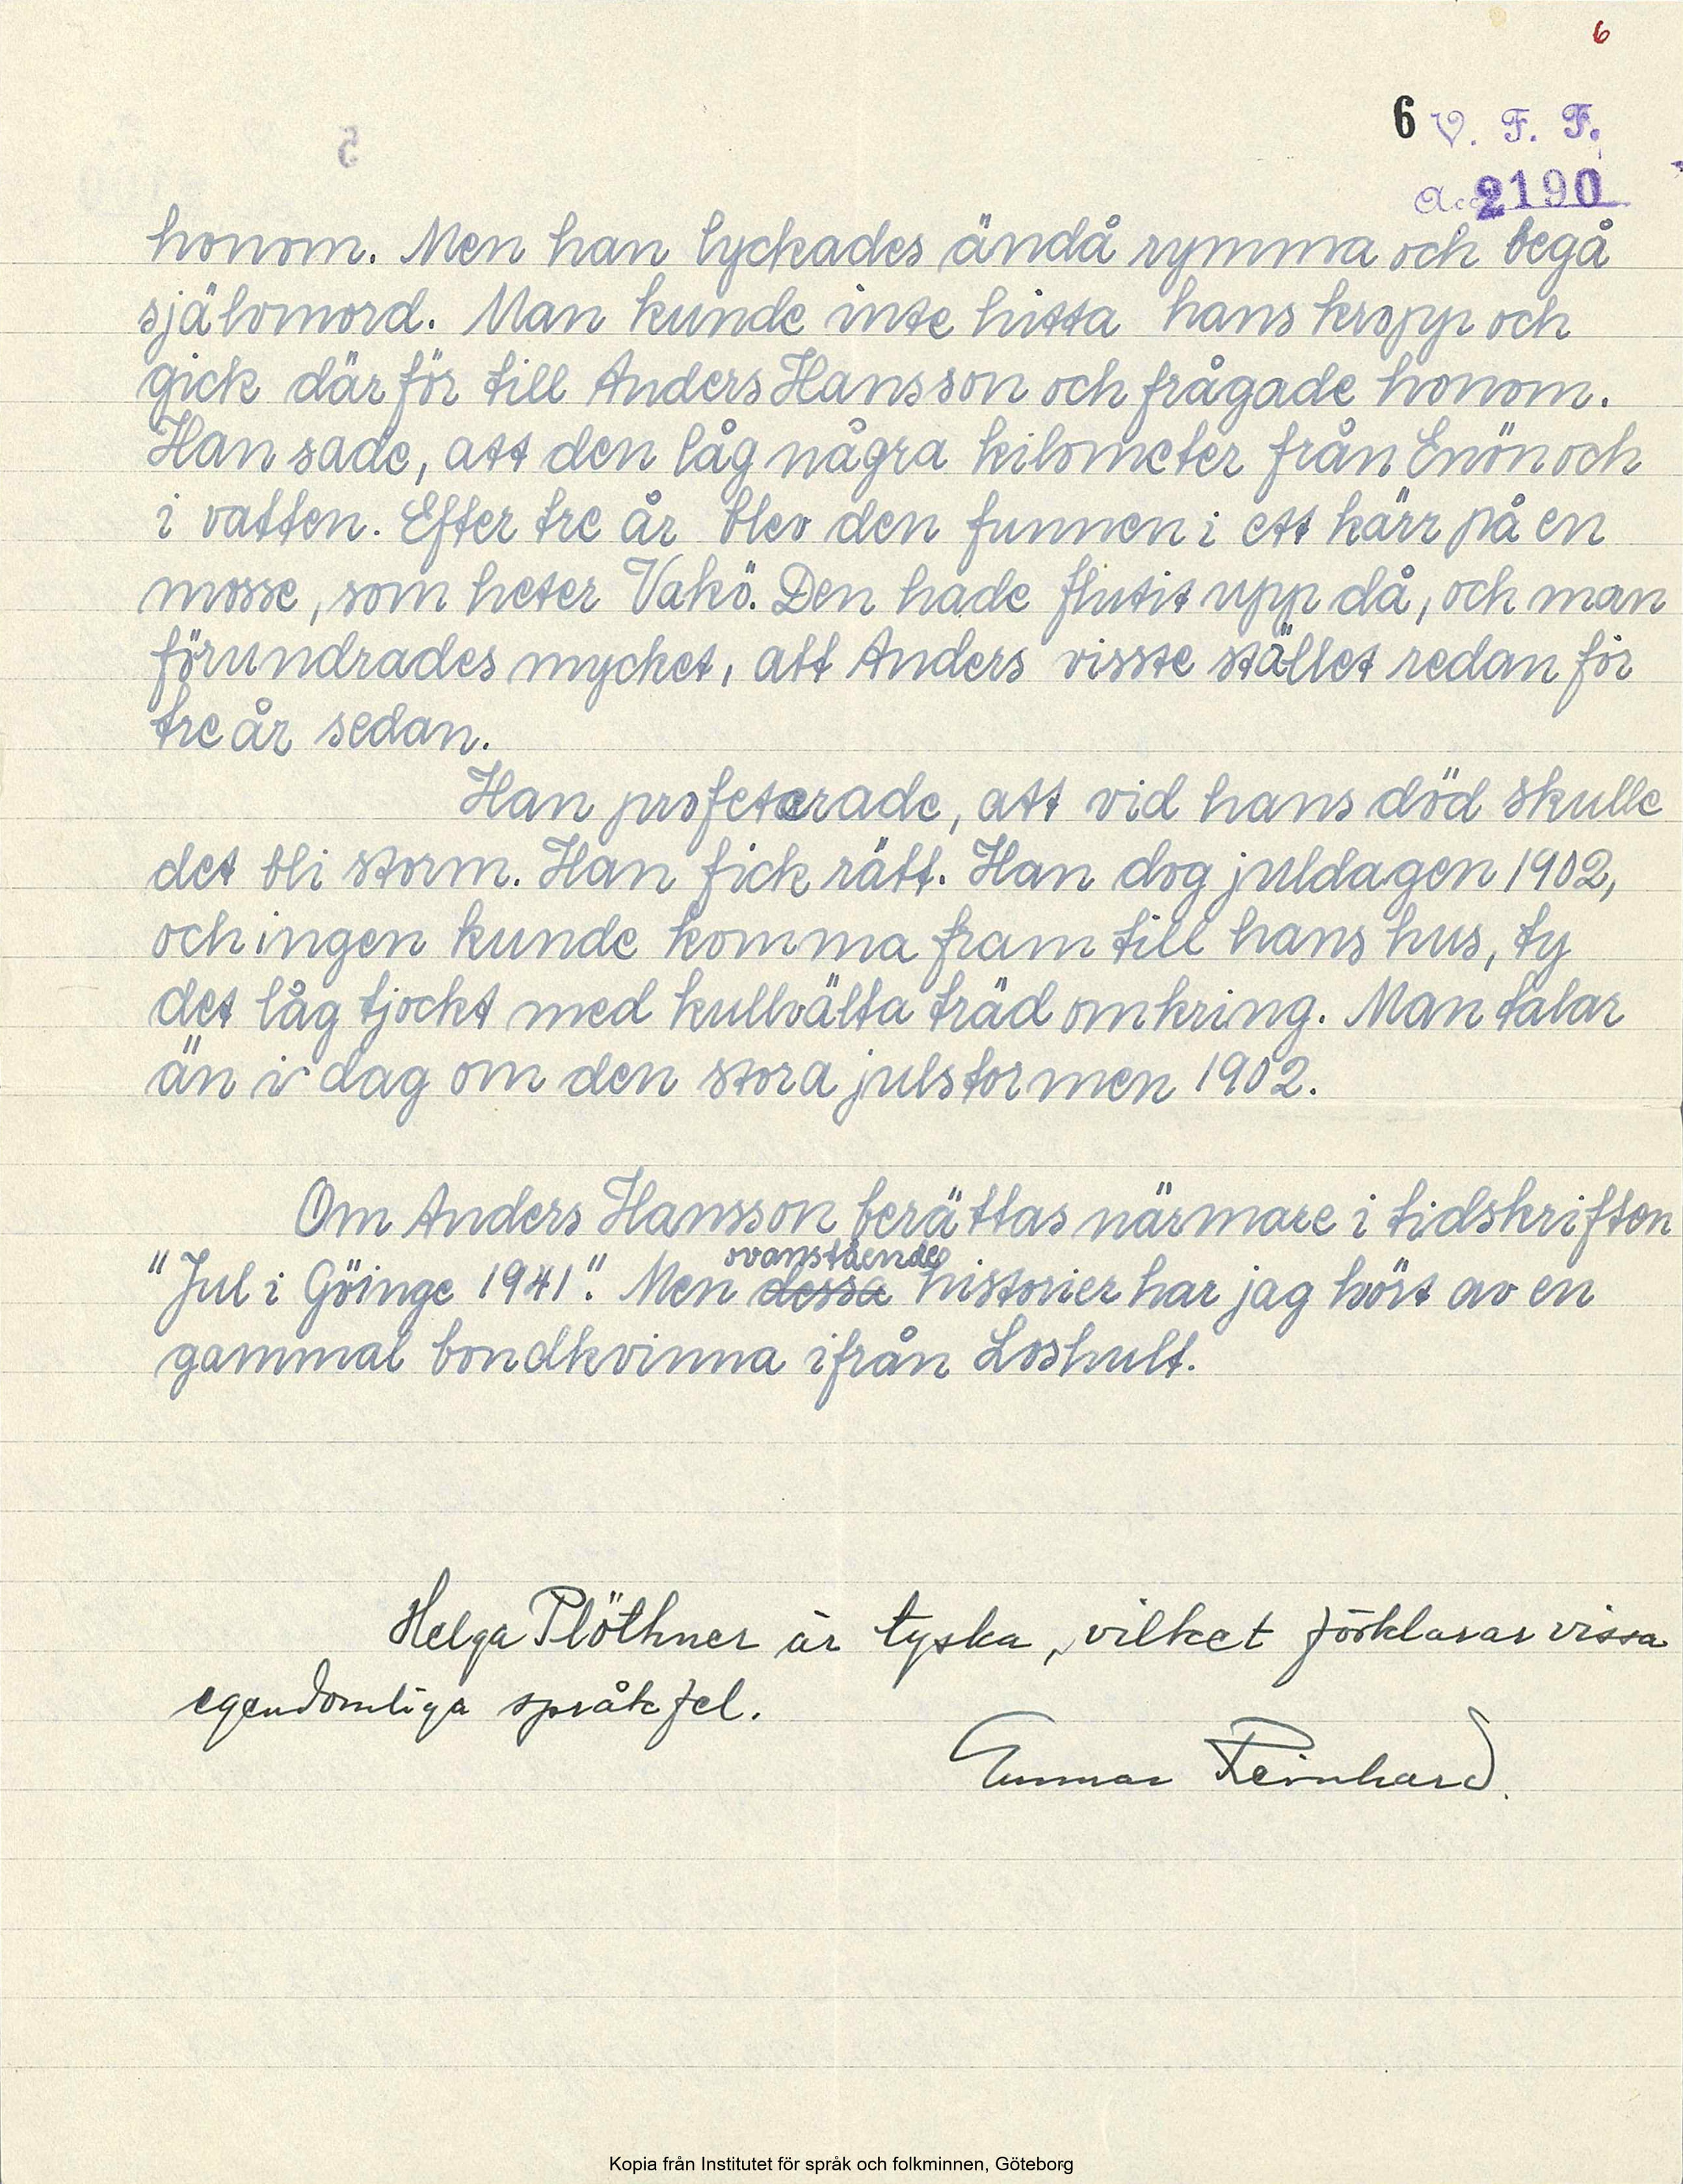 6
6 V. F. F.
Acc 2190
honom. Men han lyckades ändå rymma och begå
självmord. Man kunde inte hitta hans kropp och
gick därför till Anders Hansson och frågade honom.
Han sade, att den låg några kilometer från Enön och
i vatten. Efter tre år blev den funnen i ett kärr på en
mosse, som heter Vakö. Den hade flutit upp då, och man
förundrades mycket, att Anders visste stället redan för
tre år sedan.
Han profeterade, att vid hans död skulle
det bli storm. Han fick rätt. Han dog juldagen 1902,
och ingen kunde komma fram till hans hus, ty
det låg tjockt med kullvälta träd omkring. Man talar
än i dag om den stora julstormen 1902.
Om Anders Hansson berättas närmare i tidskriften
"Jul i Göinge 1941". Men dessa ovanstående historier har jag hört av en
gammal bondkvinna ifrån Loshult.
Helga Plöthner är tyska, vilket förklarar vissa
egendomliga språkfel.
Gunnar Reinhard.
Kopia från Institutet för språk och folkminnen, Göteborg